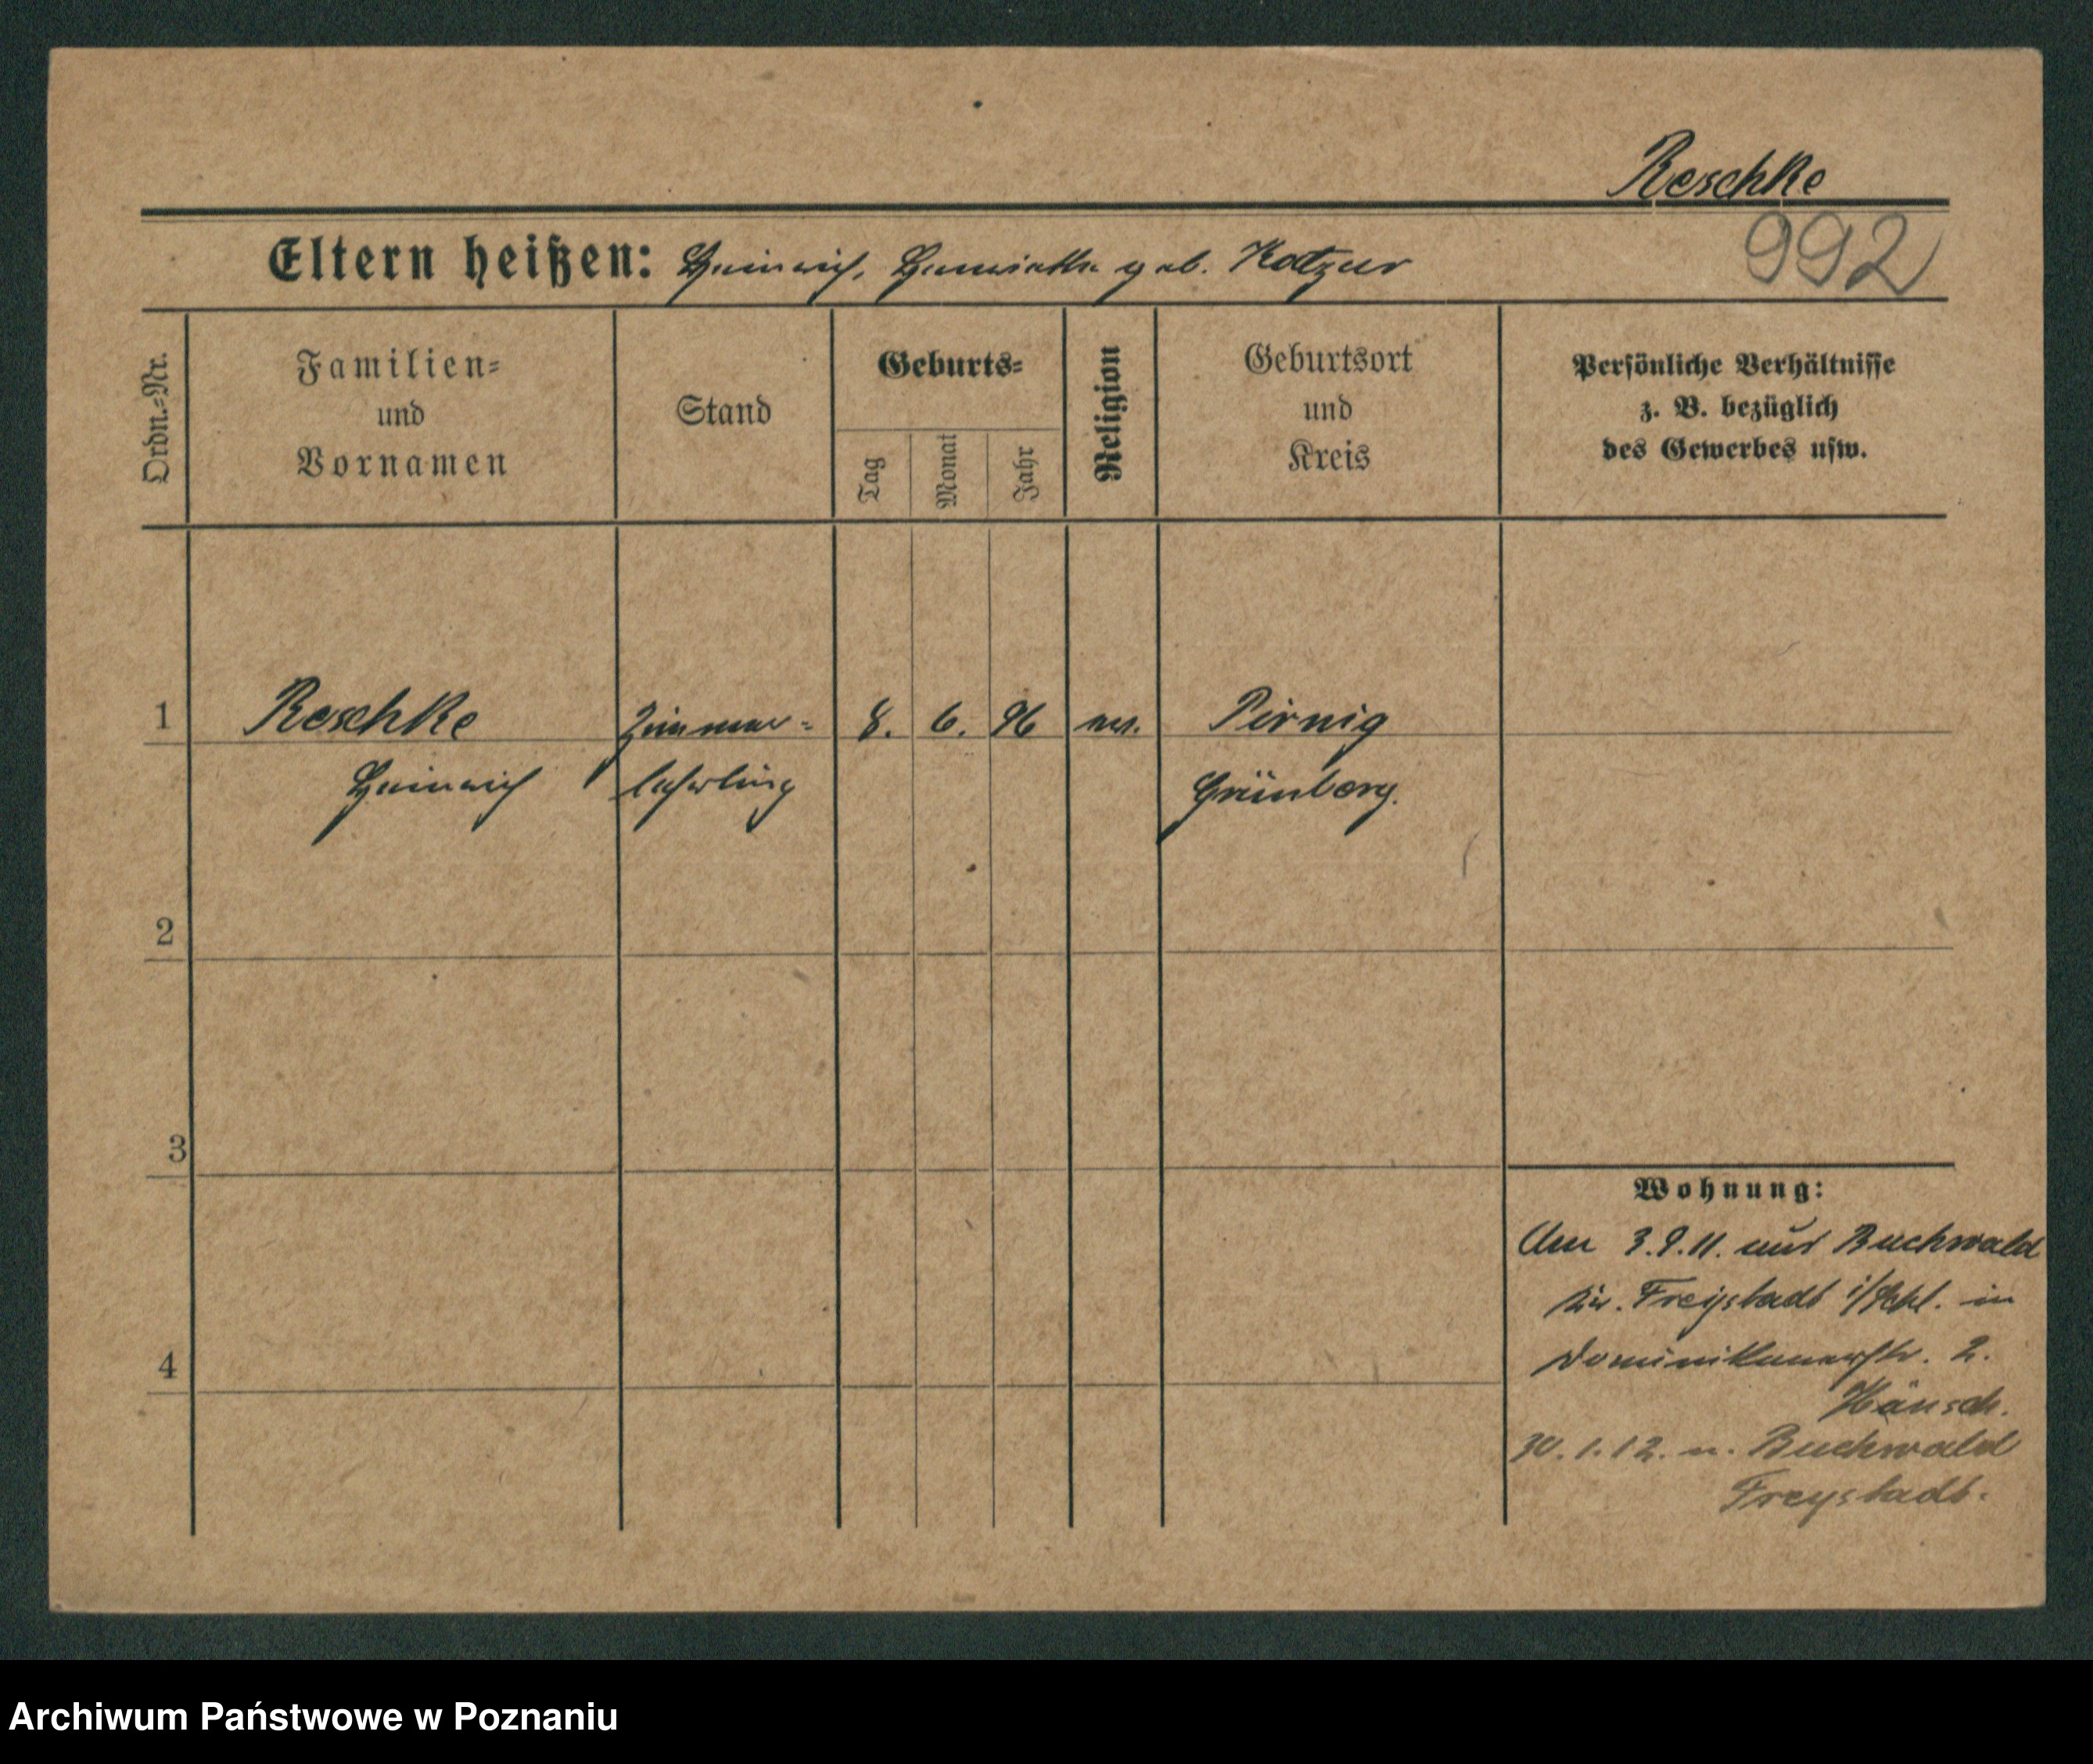 Reschke
992
Eltern heißen: Heinrich, Henriette geb. Katzur
Ordn.=Nr.
Familien=
und
Vornamen
Stand
Geburts=
Tag
Monat
Jahr
Religion
Geburtsort
und
Kreis
Persönliche Verhältnisse
z. B. bezüglich
des Gewerbes usw.
1 Reschke Zimmer= 8. 6. 96 ev. Pirnig
Heinrich lehrling Grünberg.
2
3
4
Wohnung:
Am 3.9.11. aus Buchwald
Kr. Freystadt i/Schl. in
Dominikanerstr. 2.
Hänsch.
30.1.12. n. Buchwald
Freystadt.
Archiwum Państwowe w Poznaniu